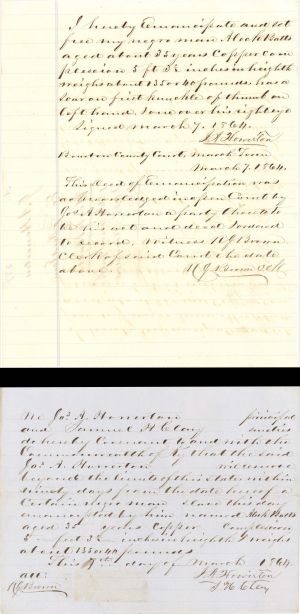 I hereby Emancipate and set
free my negro man Mock Batts
aged about 35 years Copper com
plexion 5 ft 3½ inches in heighth
weighs about 135 or 40 pounds. has a
scar on first knuckle of thumb on
left hand. Some over his right eye
Signed March 7. 1864.
J. A. Howerton
Bourbon County Court, March Term
March 7. 1864.
This Deed of Emancipation was
acknowledged in open Court by
Jas. A Howerton a party thereto to
be his act and deed &
to record. Witness R J Brown
Clerk of said Court the date
above.
R J Brown Clk
We Jas. A. Howerton principal
and Samuel H Clay sureties
do hereby Covenant to and with the
Commonwealth of Ky that the said
Jas. A. Howerton will remove
beyond the limits of this State within
ninety days from the date hereof a
Certain negro man Slave this day
emancipated by him named Mock Batts
aged 35 years Copper Complexion
5 feet 3½ inches in heighth & weighs
about 135 or 40 pounds
This 7th day of March 1864
att: J. A. Howerton
R J Brown S. H. Clay